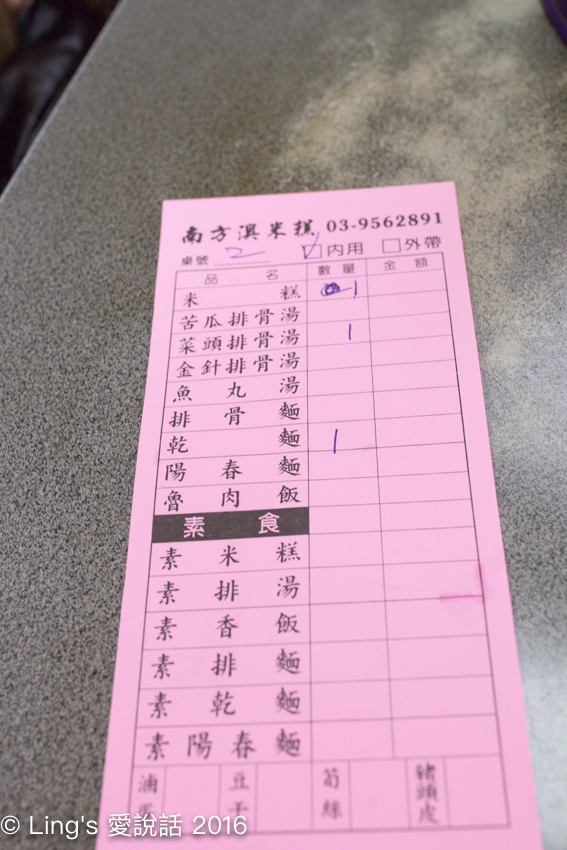 南方澳米糕 03-9562891
桌號 2 ✓□內用 □外帶
品名 數量 金額
米糕 1
苦瓜排骨湯
菜頭排骨湯 1
金針排骨湯
魚丸湯
排骨麵
乾麵 1
陽春麵
魯肉飯
素食
素米糕
素排湯
素香飯
素排麵
素乾麵
素陽春麵
滷蛋 豆干 筍絲 豬頭皮
© Ling's 愛說話 2016